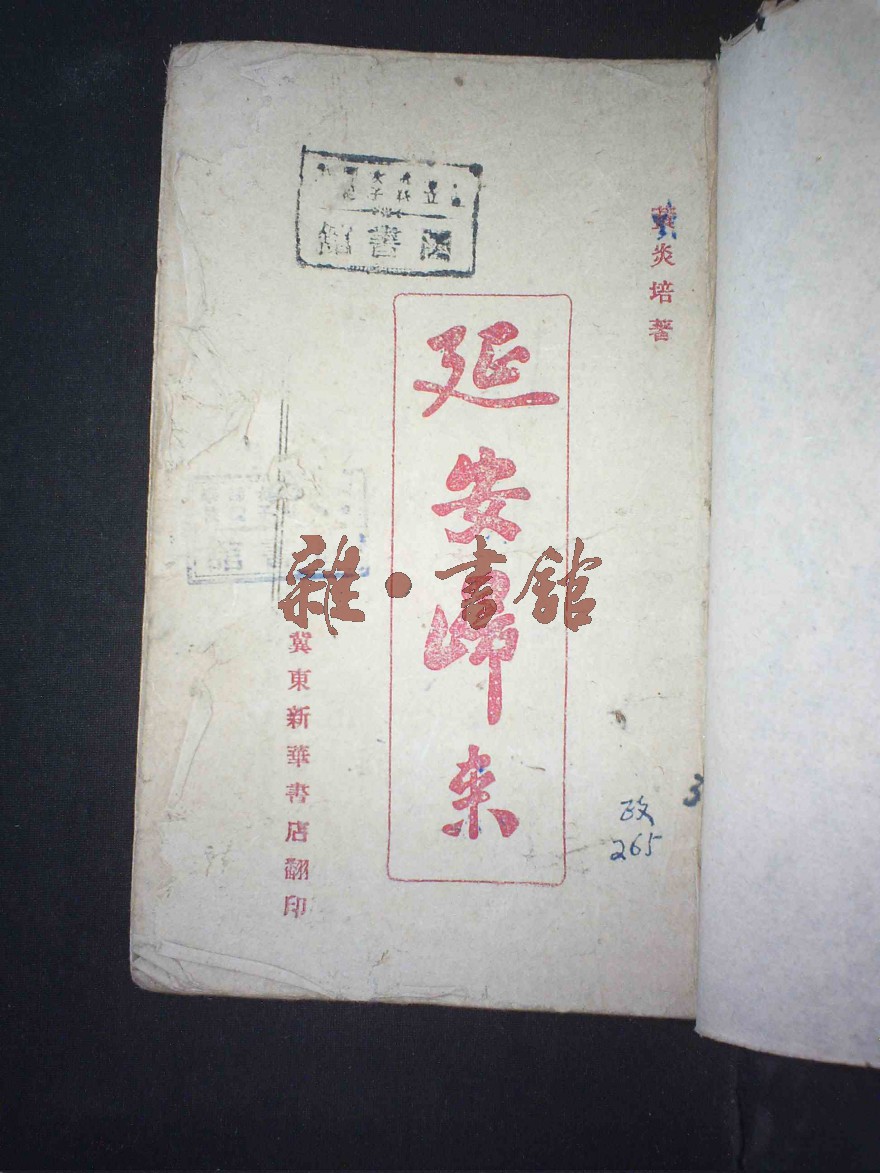 黄炎培著
延安归来
冀東新華書店翻印
圖書館
政
265
3
雜·書館